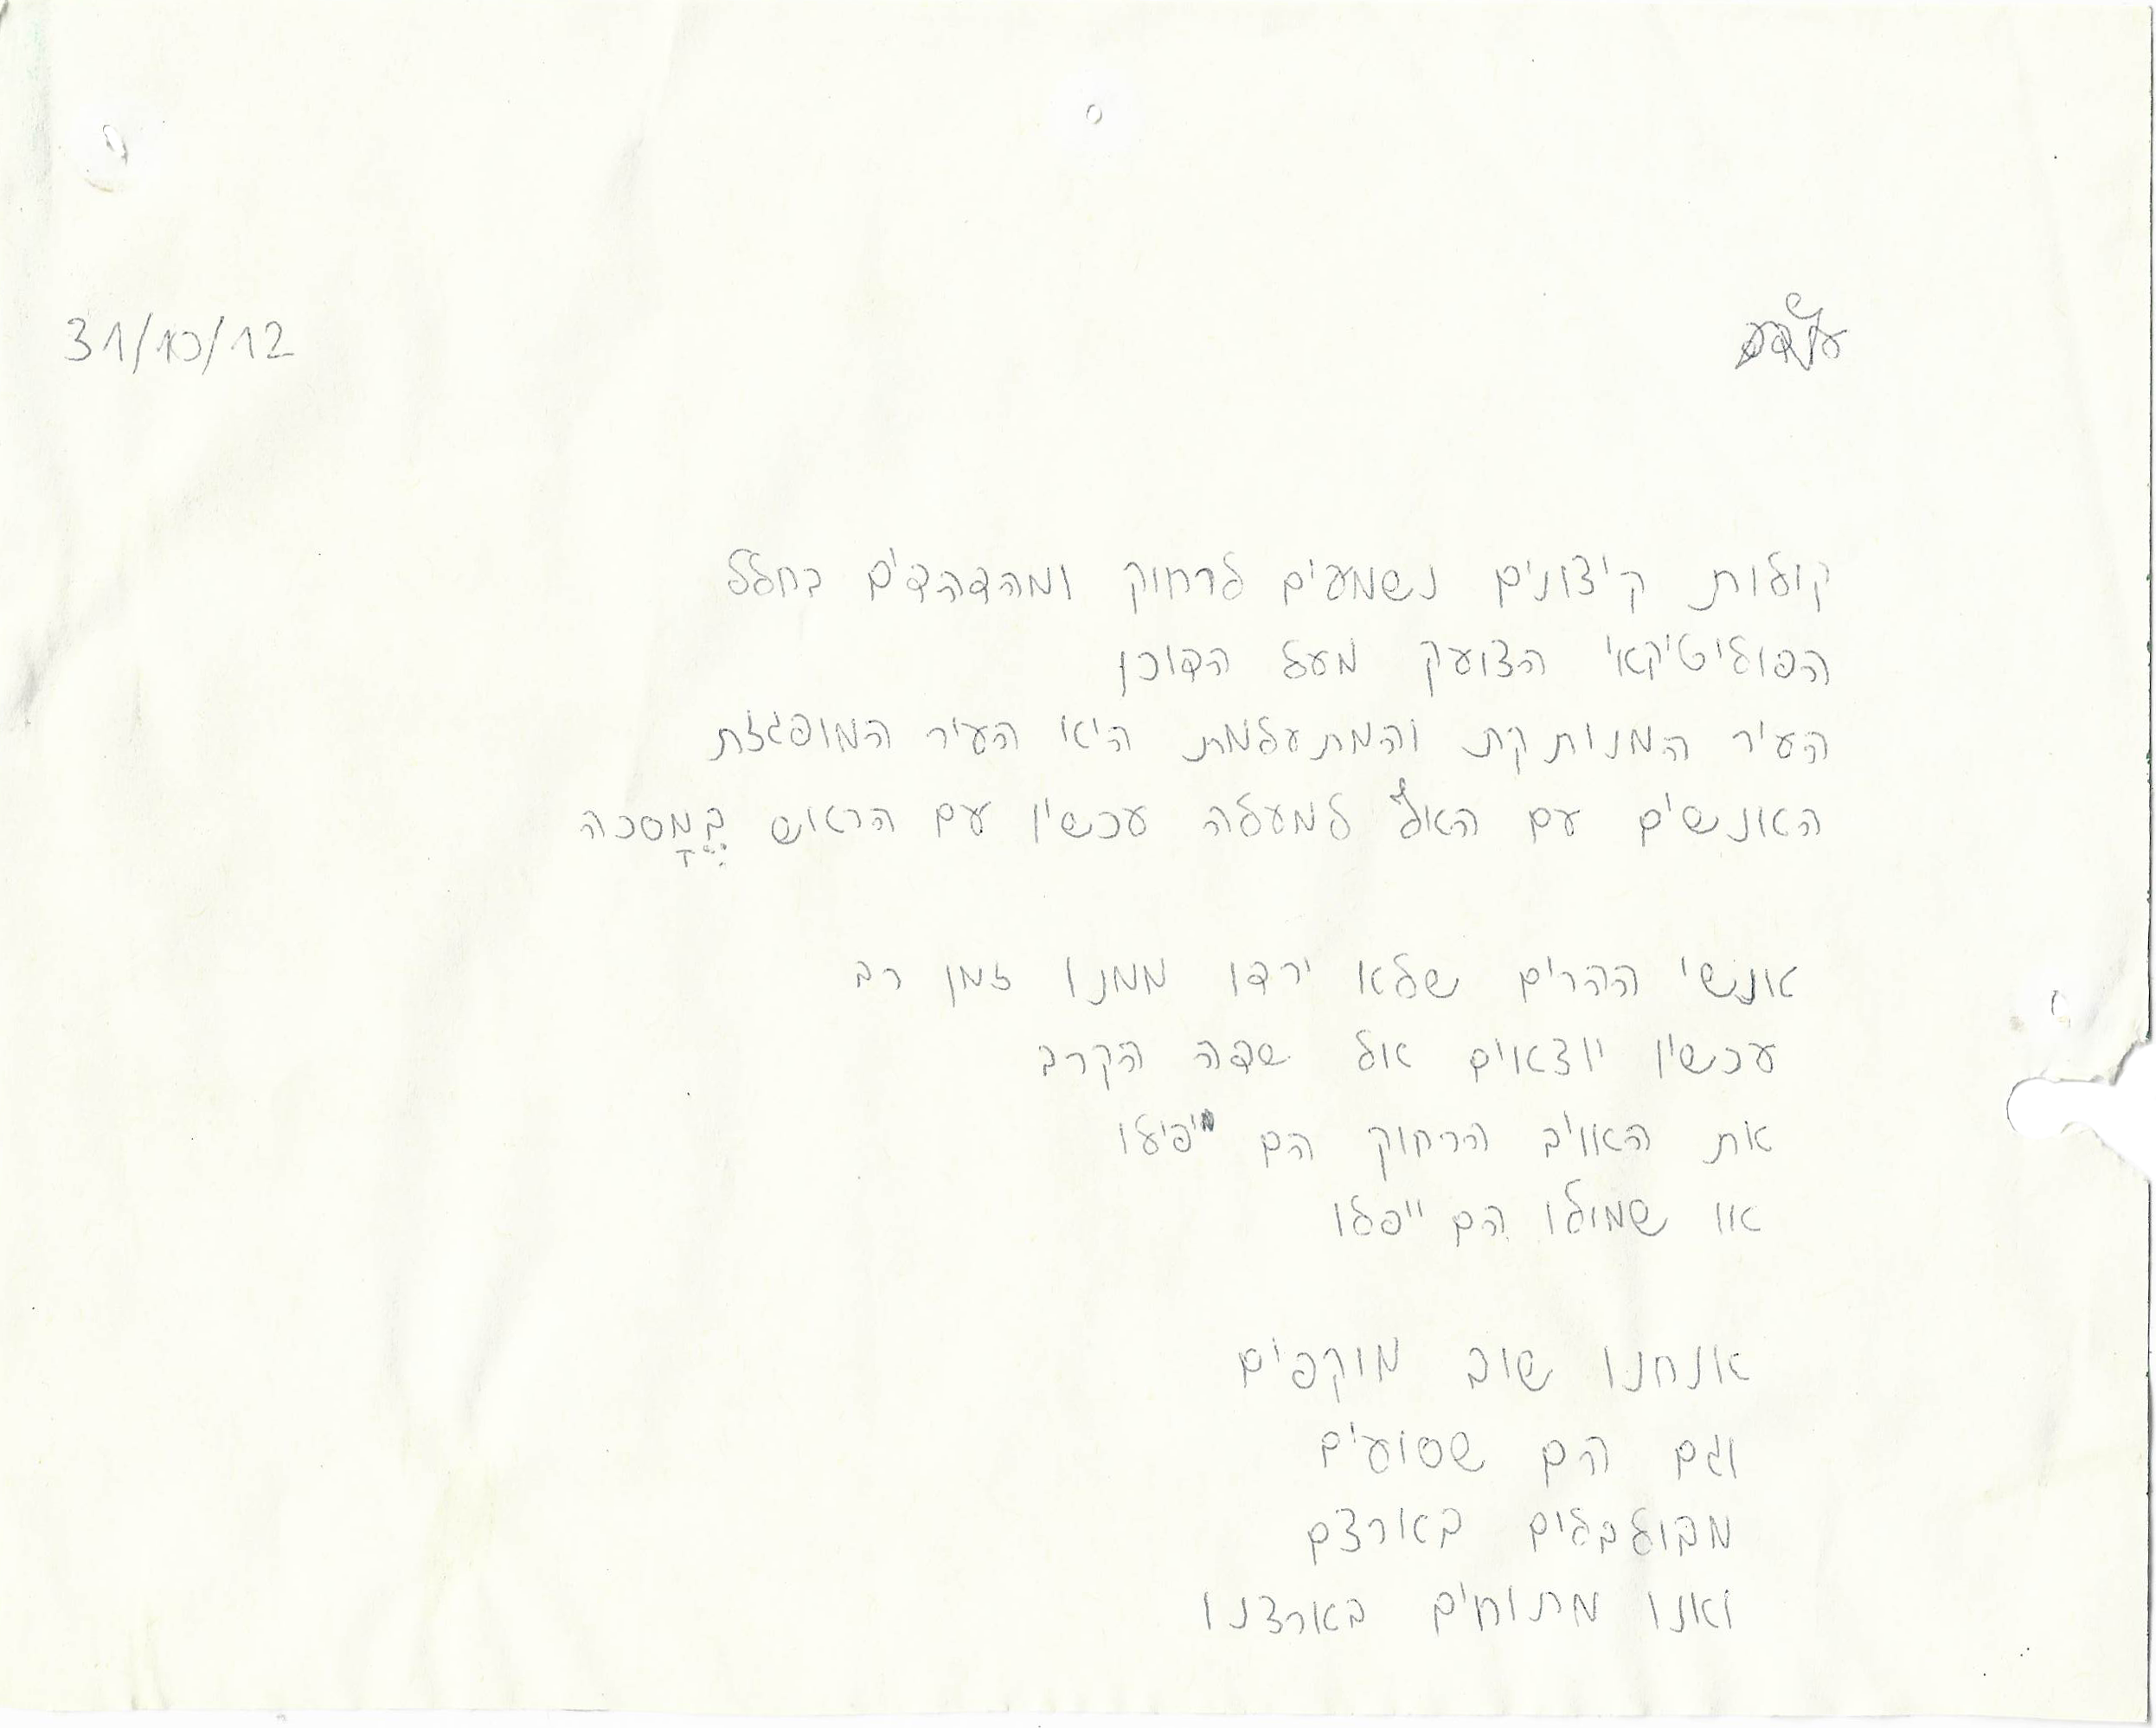 31/10/12
קולות קיצונים נשמעים לרחוק ומהדהדים בחלל
הפוליטיקאי הצועק מעל הדוכן
העיר המנותקת והמתעלמת היא העיר המופגזת
האנשים עם האף למעלה עכשיו עם הראש בַּמָסכה
אנשי ההרים שלא ירדו ממנו זמן רב
עכשיו יוצאים אל שדה הקרב
את האוייב הרחוק הם יפילו
או שמולו הם ייפלו
אנחנו שוב מוקפים
וגם הם שסועים
מבולבלים בארצם
ואנו מתוחים בארצנו